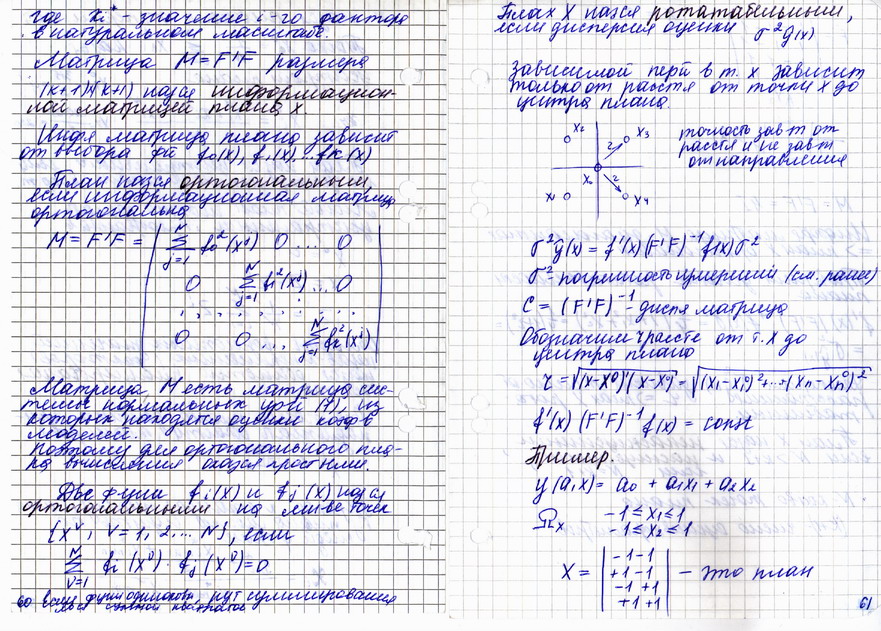 где Xi* - значение i-го фактора
в натуральном масштабе.
Матрица M = F'F размера
(k+1)x(k+1) наз-ся информацион-
ной матрицей плана X.
Инф-я матрица плана зависит
от выбора ф-й f₀(x), f₁(x), ... fk(x)
План наз-ся ортогональным,
если информационная матрица
ортогональна
M = F'F = | Σ f₀²(xʲ) 0 ... 0 |
0 Σ f₁²(xʲ) ... 0
0 0 ... Σ fk²(xʲ)
Матрица M есть матрица сис-
темы нормальных ур-й (7), из
которых находятся оценки коэф-в
моделей.
Поэтому для ортогонального пла-
на вычисления ок-ся простыми.
Две ф-ции fi(x) и fj(x) наз-ся
ортогональными на мн-ве точек
{xᵛ, v = 1, 2, ... N}, если
Σ fi(xᵛ) · fj(xᵛ) = 0
60 если ф-ции одинаковы, суммирования
квадратов
План X наз-ся ротатабельным,
если дисперсия оценки σ²ŷ(x)
зависимой пер-й в т. x зависит
только от расст-я от точки x до
центра плана.
X₂ X₃
r
X₀
r
X₁ X₄
точность зав-т от
расст-я и не зав-т
от направления
σ²ŷ(x) = f'(x)(F'F)⁻¹f(x)σ²
σ² - погрешность измерений (см. ранее)
C = (F'F)⁻¹ - дисп-я матрица
Обозначим ч/з r расст-е от т. X до
центра плана
r = √(x-x⁰)'(x-x⁰) = √(x₁-x₁⁰)²+...+(xn-xn⁰)²
f'(x)(F'F)⁻¹f(x) = const
Пример.
y(a,x) = a₀ + a₁x₁ + a₂x₂
Ωx -1 ≤ x₁ ≤ 1
-1 ≤ x₂ ≤ 1
X = | -1 -1 |
+1 -1
-1 +1
+1 +1
- это план
61